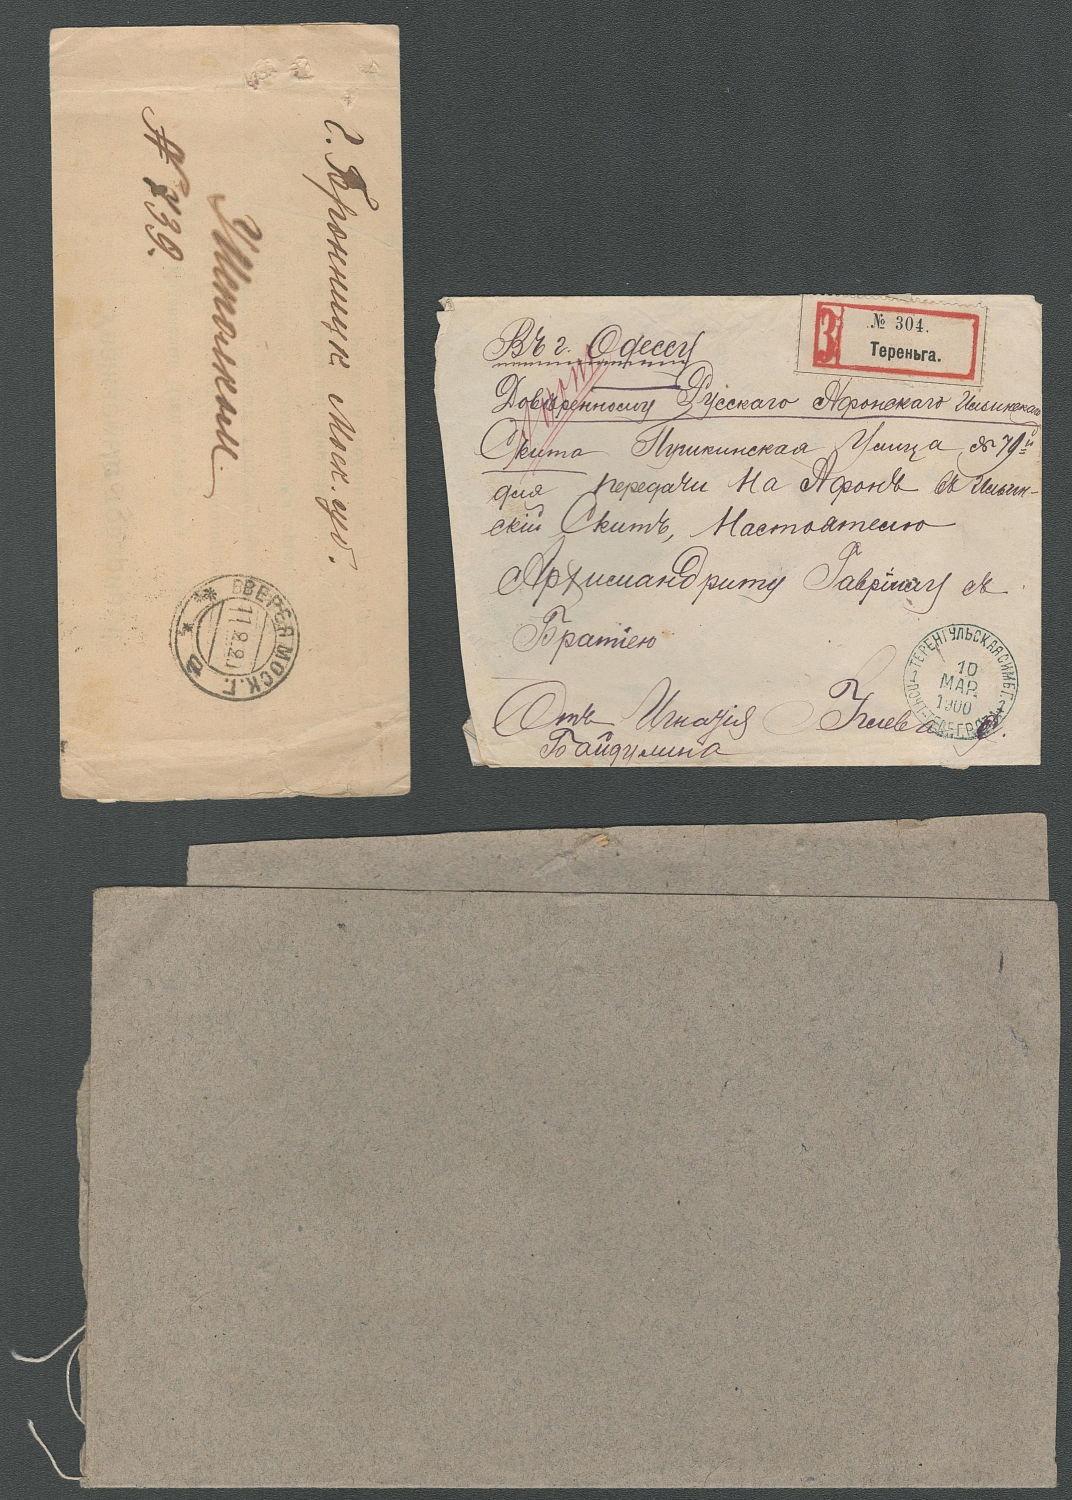 г. Бронницк Моск. губ.
№ 239.
ВЕРЕЯ МОСК. Г.
З
№ 304.
Тереньга.
Въ г. Одессу
Довѣренному Русскаго Афонскаго Ильинскаго
Скита Пушкинская Улица № 79й
для передачи На Афонъ въ Ильин-
скій Скитъ, Настоятелю
Архимандриту Гавріилу съ
Братіею
Отъ Игнатія
Байдулина
ТЕРЕНГУЛЬСКАЯ СИМБ. Г.
10
МАР.
1900